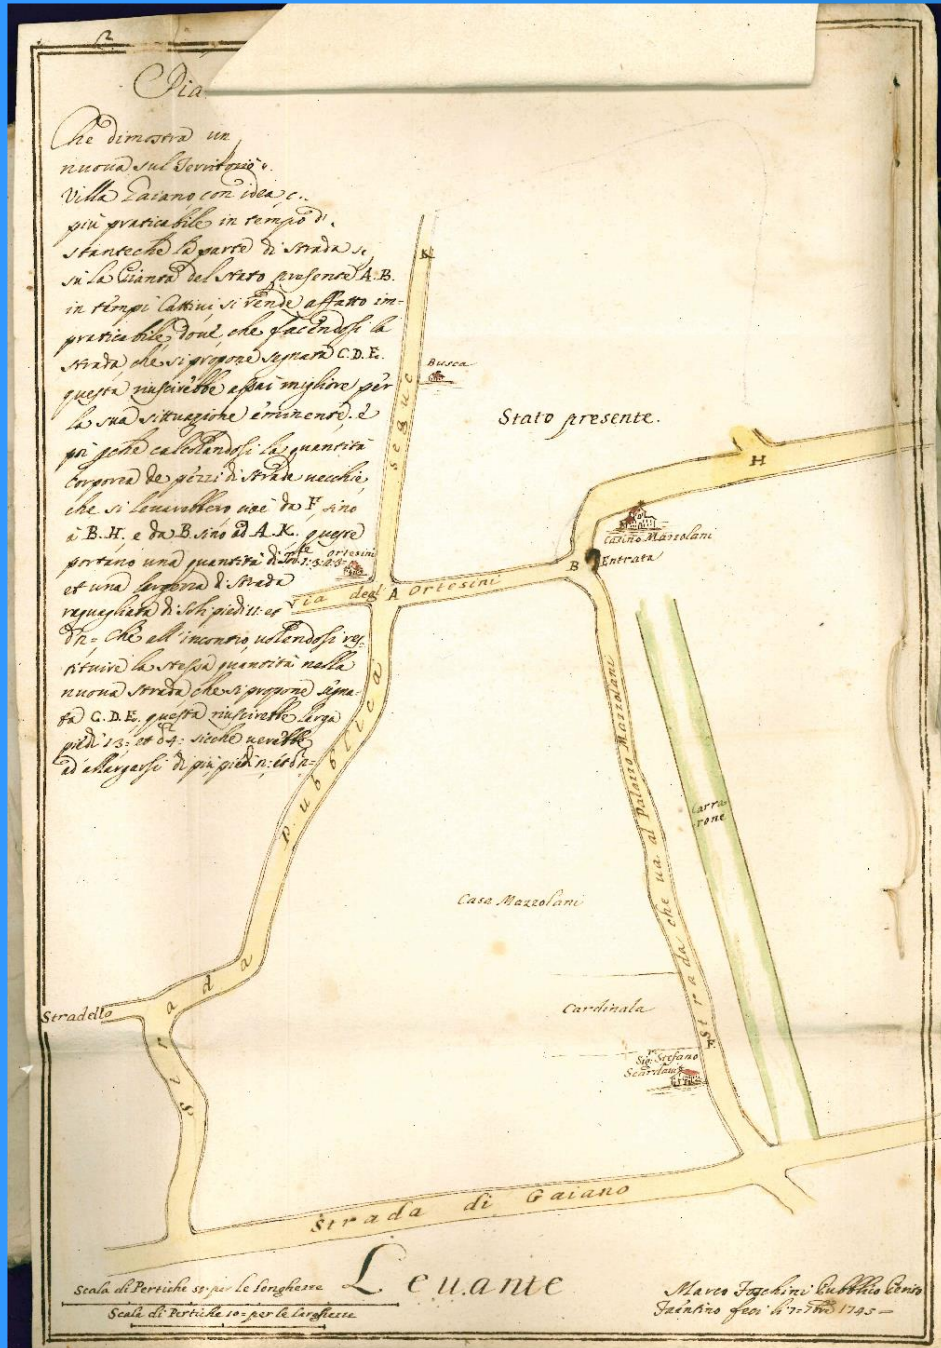 Pia
Che dimostra un
nuova sul Territorio
Villa Gaiano con idea
più praticabile in tempo d'
stanteche la parte di strada
sù la Pianta del stato presente A.B.
in tempi Cattivi, si rende affatto im-
praticabile, dove, che facendosi la
strada, che si propone segnata C.D.E.
questa riuscirebbe assai migliore per
la sua situazione eminente. è
poi calcolandosi la quantità
corporea de pezzi di strade vecchie,
che si levarebbero cioè da F. sino
à B.H. e da B. sino ad A.K. queste
portano una quantità di
et una largezza di strada
raguagliata di soli piedi 11: et
Che all'incontro, volendosi res-
tituire la stessa quantità nella
nuova strada che si propone segna-
ta C.D.E. questa riuscirebbe larga
piedi 13: et sicche verebbe
ad allargarsi di più piedi
K
segue
Busca
Stato presente.
H
Casino Mazzolani
Entrata
B
Ortesini
Via degl' Ortesini
A
Strada che va al Palazzo Mazzolani
Carra-
rone
Strada Pubblica
Casa Mazzolani
Stradello
Cardinala
F
Sig.r Stefano
Strada di Gaiano
Levante
Scala di Pertiche 50: per le longhezze
Scala di Pertiche 10= per le larghezze
Marco Foschini Pubblico Perito
Faentino feci li 7: 1745=